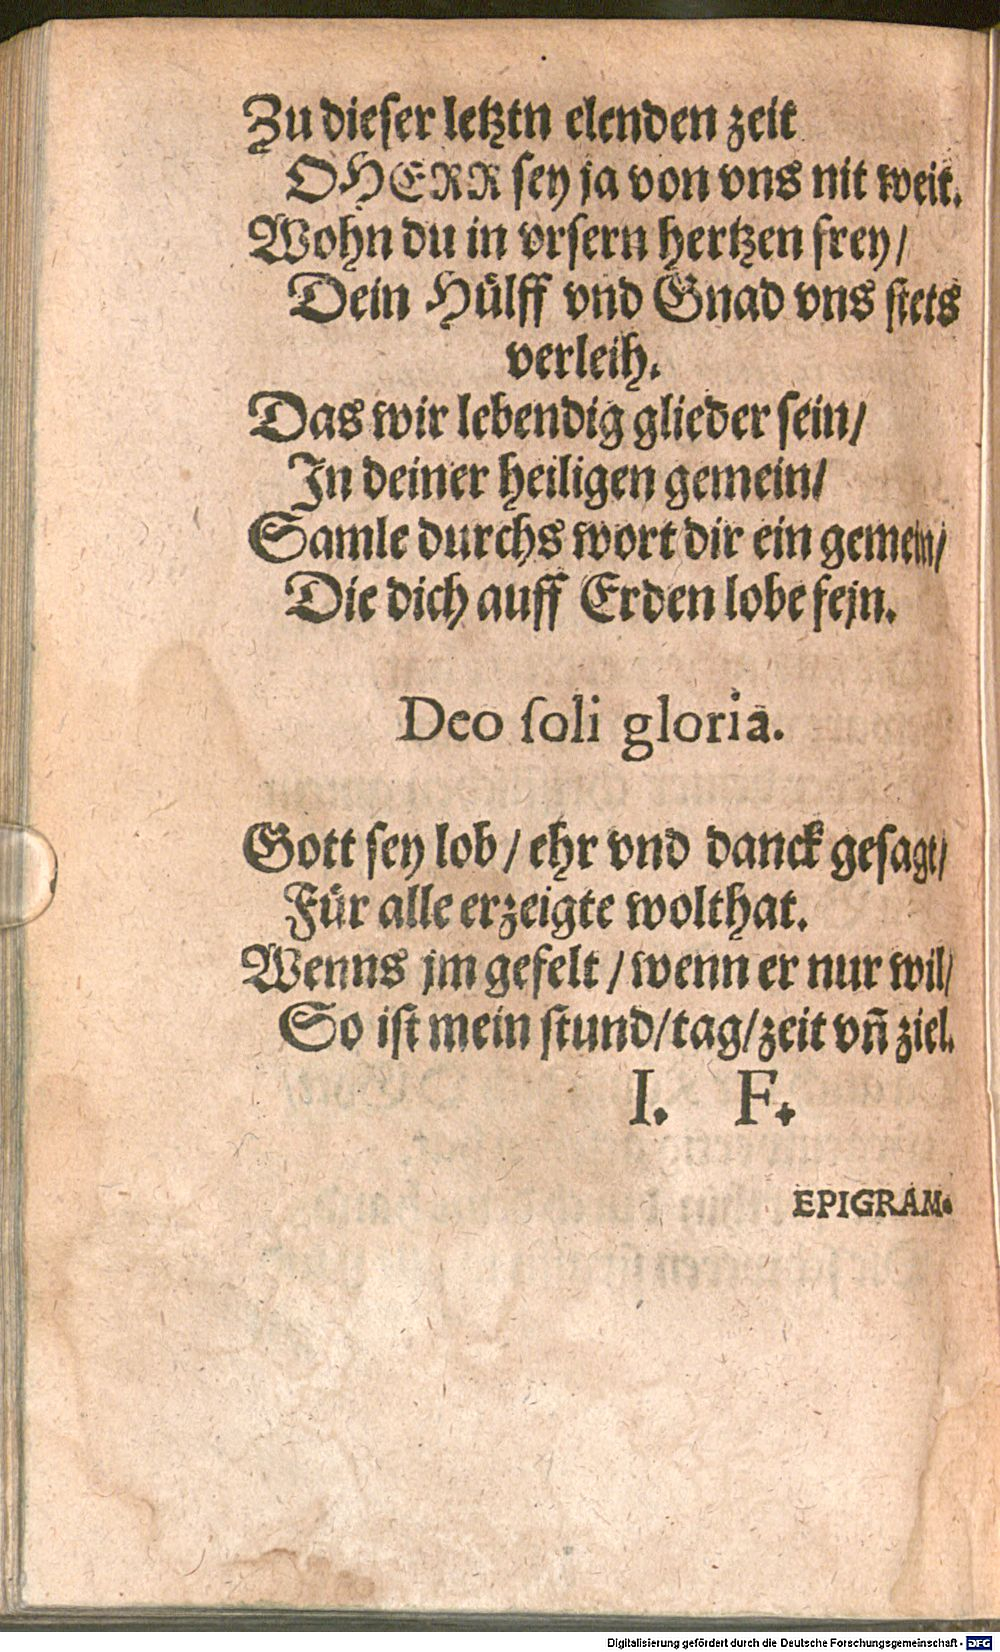 Zu dieſer letztn elenden zeit
OHERR ſey ja von vns nit weit.
Wohn du in vrſern hertzen frey/
Dein Hülff vnd Gnad vns ſtets
verleih.
Das wir lebendig glieder ſein/
In deiner heiligen gemein/
Samle durchs wort dir ein gemein/
Die dich auff Erden lobe fejn.
Deo ſoli gloria.
Gott ſey lob / ehr vnd danck geſagt/
Für alle erzeigte wolthat.
Wenns jm gefelt / wenn er nur wil/
So iſt mein ſtund/tag/zeit vñ ziel.
I. F.
EPIGRAM.
Digitalisierung gefördert durch die Deutsche Forschungsgemeinschaft - DFG